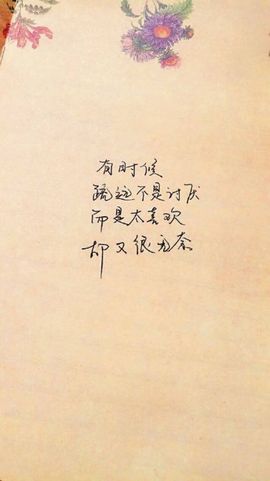 有时候
疏远不是讨厌
而是太喜欢
却又很无奈